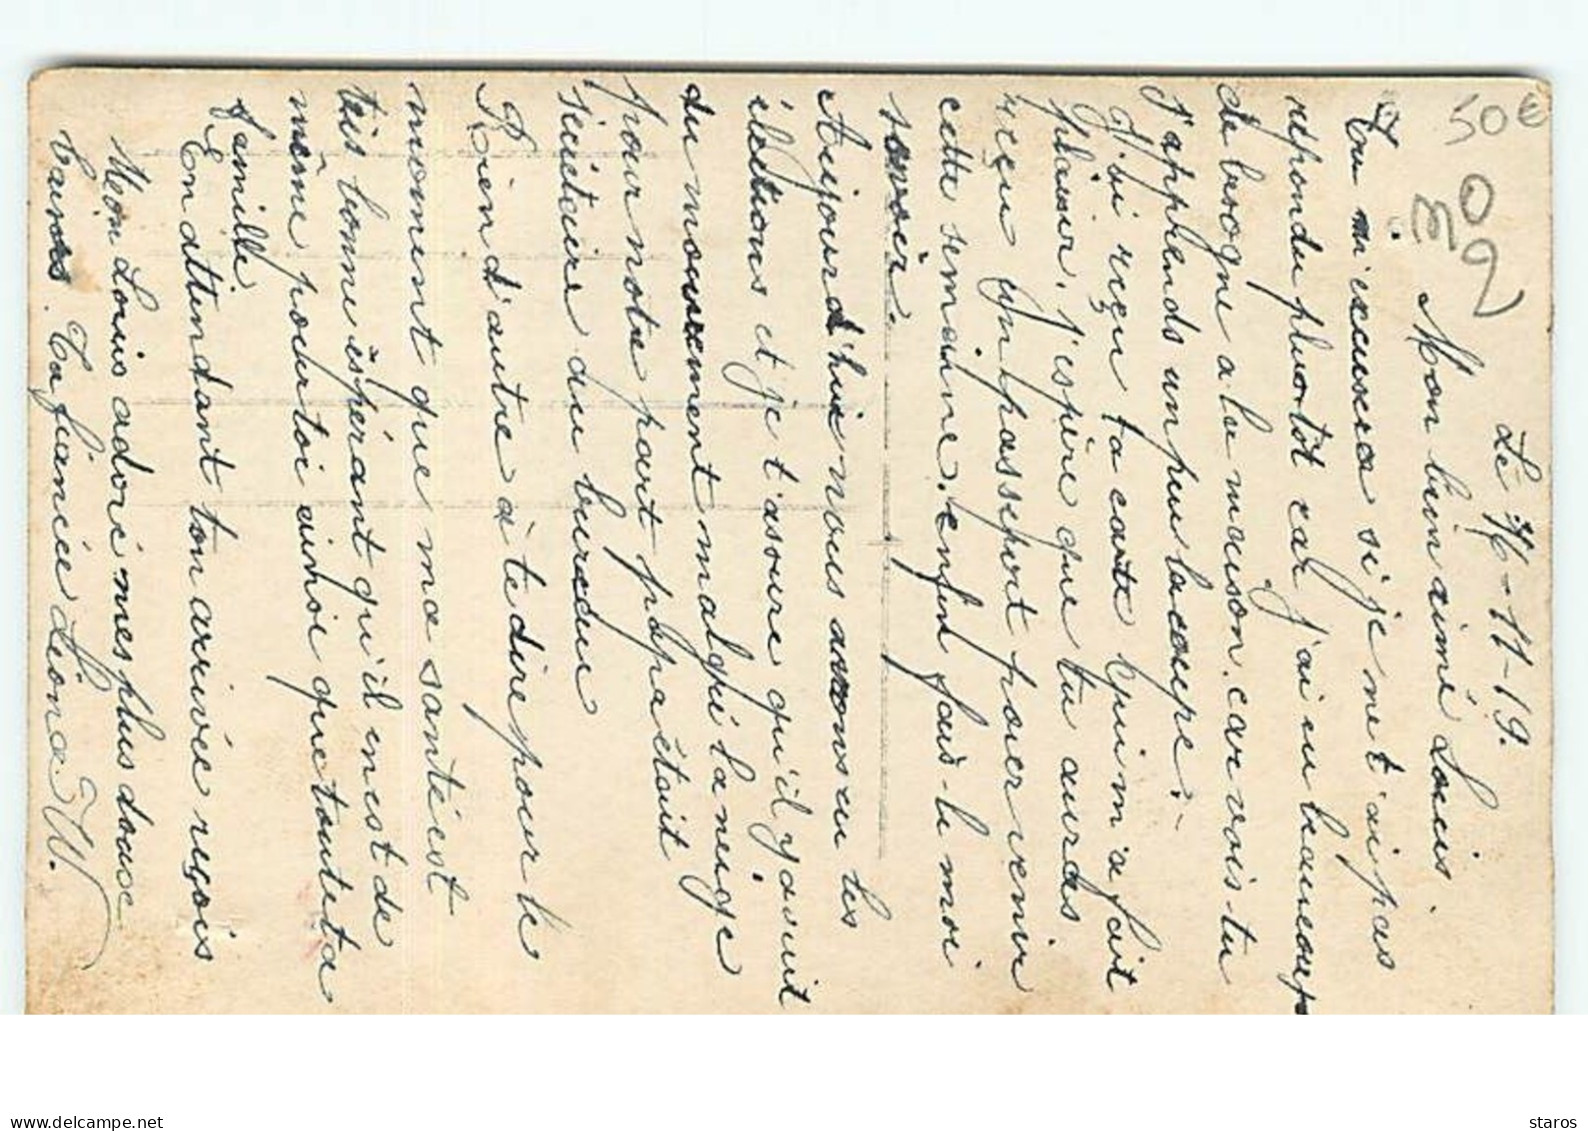 Le 16-11-19.
Mon bien aimé Louis.
Tu m'excusera si je ne t'ai pas
répondu pluotôt car j'ai eu beaucoup
de besogne a la maison, car vois-tu
J'apprends un peu la coupe.
J'ai reçu ta carte qui m'a fait
plaisir, j'espère que tu auras
reçu un passeport pour venir
cette semaine, enfin fais-le moi
savoir.
Aujourd'hui nous avons eu les
élections et je t'assure qu'il y avait
du mouvement malgré la neige
pour notre part papa était
secrétaire au bureau
Rien d'autre à te dire pour le
moment que ma santé est
très bonne espérant qu'il en est de
même pour toi ainsi que toute ta
famille.
En attendant ton arrivée reçois
Mon Louis adoré mes plus doux
baisers. Ta fiancée Léona W.
50€
delcampe.net
staros